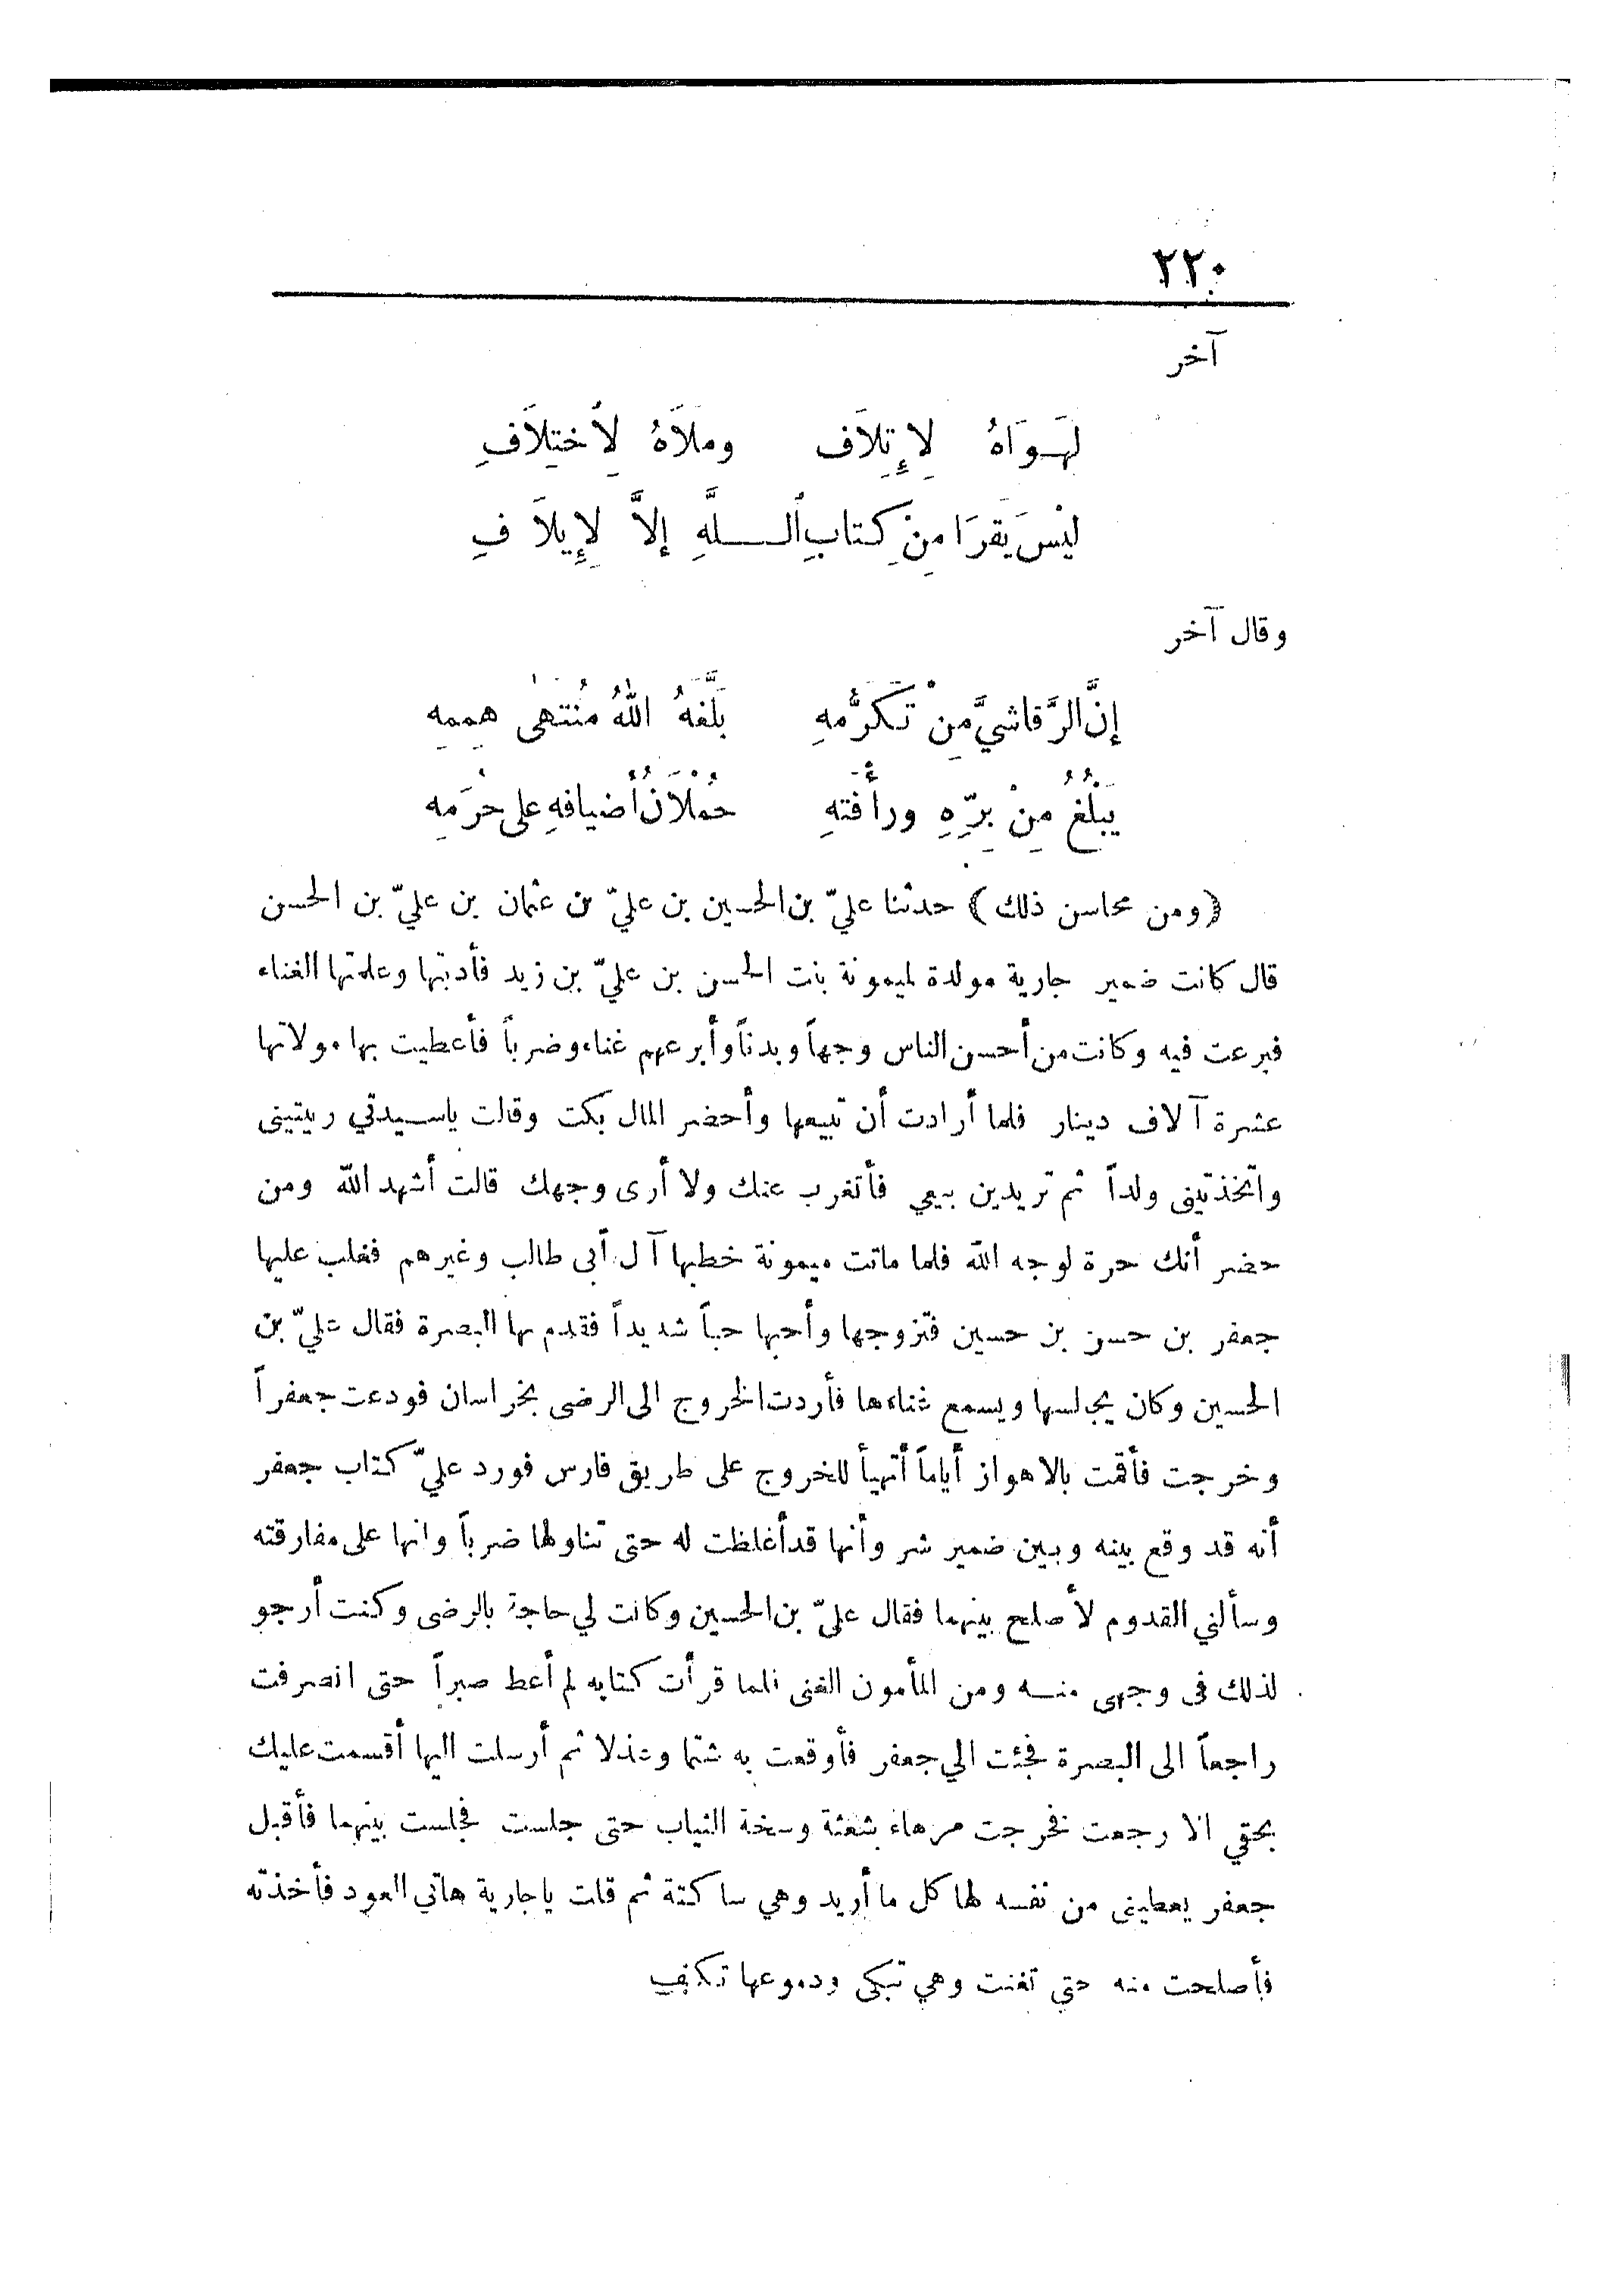 ٢٢٠
آخر
لَهـوَاهُ لِإِتِلاَف وملاَهُ لِاُختِلاَفِ
ليْسَ يَقرَا مِنْ كِتابِ اُلـلَّهِ إلاَّ لِإِيلاَفِ
وقال آخر
إنَّ الرَّقاشيَّ مِنْ تَكَرُّمهِ بَلَّغهُ اللهُ مُنتهىٰ هِممِهِ
يَبْلُغُ مِنْ بِرِّهِ ورأفتهِ حُمْلاَنُ أضيافهِ على حُرَمِه
﴿ومن محاسن ذلك﴾ حدثنا عليّ بن الحسين بن عليّ بن عثمان بن عليّ بن الحسن
قال كانت ضمير جارية مولدة لميمونة بنت الحسن بن عليّ بن زيد فأدبتها وعلمتها الغناء
فبرعت فيه وكانت من أحسن الناس وجهاً وبدناً وأبرعهم غناء وضرباً فأعطيت بها مولاتها
عشرة آلاف دينار فلما أرادت أن تبيعها وأحضر المال بكت وقالت ياسـيدتي ربيتينى
واتخذتينى ولداً ثم تريدين بيعي فأتغرب عنك ولا أرى وجهك قالت أشهد الله ومن
حضر أنك حرة لوجه الله فلما ماتت ميمونة خطبها آل أبى طالب وغيرهم فغلب عليها
جعفر بن حسن بن حسين فتزوجها وأحبها حباً شديداً فقدم بها البصرة فقال عليّ بن
الحسين وكان يجالسها ويسمع غناءها فأردت الخروج الى الرضى بخراسان فودعت جعفراً
وخرجت فأقمت بالاهواز أياماً أتهيأ للخروج على طريق فارس فورد عليّ كتاب جعفر
أنه قد وقع بينه وبين ضمير شر وأنها قد أغلظت له حتى تناولها ضرباً وانها على مفارقته
وسألني القدوم لأصلح بينهما فقال عليّ بن الحسين وكانت لي حاجة بالرضى وكنت أرجو
لذلك فى وجهى منـه ومن المأمون الغنى فلما قرأت كتابه لم أعط صبراً حتى انصرفت
راجعاً الى البصرة فجئت الي جعفر فأوقعت به شتما وعذلا ثم أرسلت اليها أقسمت عليك
بحقي الا رجعت فخرجت مرهاء شعثة وسخة الثياب حتى جلست فجلست بينهما فأقبل
جعفر يعطينى من نفسه لها كل ما أريد وهي ساكتة ثم قلت ياجارية هاتي العود فأخذته
فأصلحت منه حتي تغنت وهي تبكى ودموعها تكف